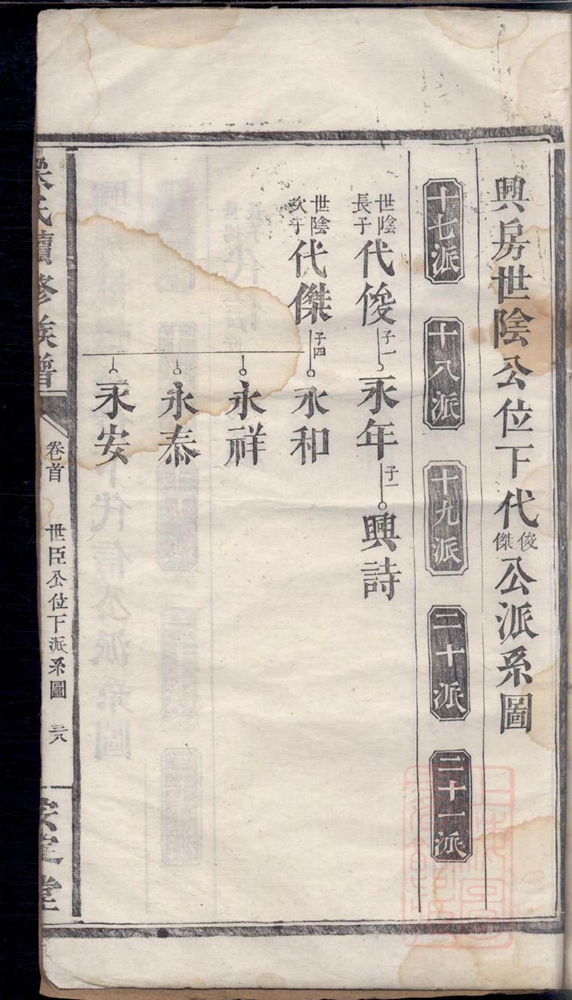 興房世陰公位下代俊傑公派系圖
十七派 十八派 十九派 二十派 二十一派
世陰長子 代俊 子一 永年 子一 興詩
世陰次子 代傑 子四 永和
永祥
永泰
永安
氏續修族譜 卷首 世臣公位下派系圖 定堂